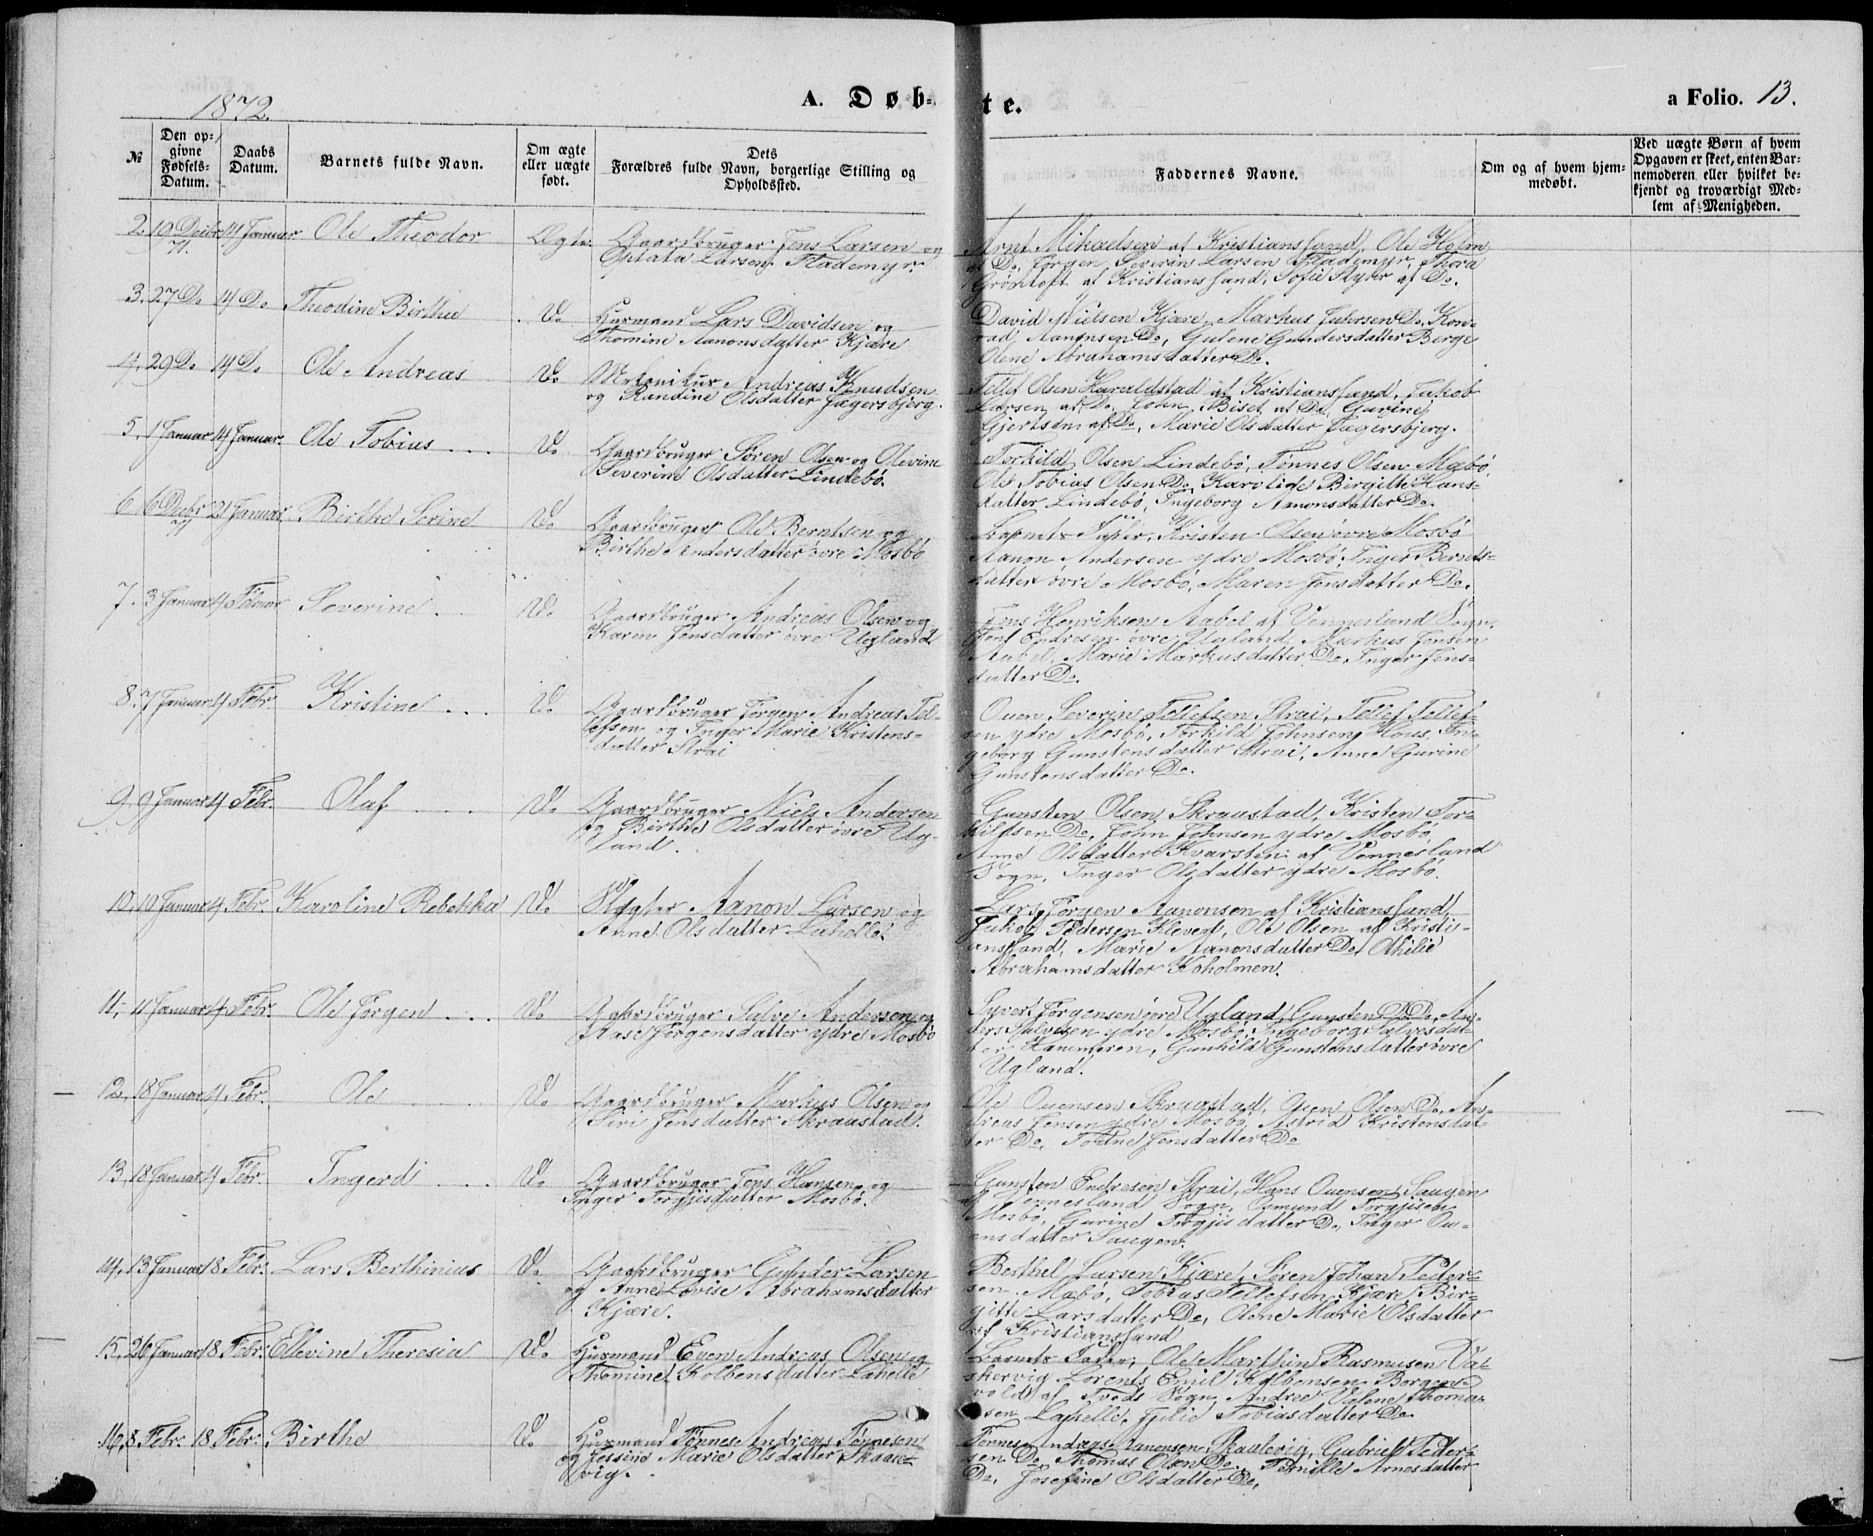 1872.
A. Døb-
te.
a Folio. 13.
№
Den op-
givne
Fødsels-
Datum.
Daabs
Datum.
Barnets fulde Navn.
Om ægte
eller uægte
født.
Dets
Forældres fulde Navn, borgerlige Stilling og
Opholdssted.
Faddernes Navne.
Om og af hvem hjem-
medøbt.
Ved uægte Børn af hvem
Opgaven er skeet, enten Bar-
nemoderen eller hvilket be-
kjendt og troværdigt Med-
lem af Menigheden.
2. 19 Decbr. 71. 14 Januar Ole Theodor Ægte Gaardbruger Jens Larsen og
Optata Larsen Flademyr.
Arnt Mikaelsen af Kristianssand, Ole Holm
af Do, Jørgen Severin Larsen Flademyr, Thora
Grøntoft af Kristianssand, Sofie af Do.
3. 27 Do 14 Do Theodine Birthe Do Husmand Lars Davidsen og
Thomine Aanonsdatter Kjære
David Nielsen Kjære, Markus Do, Kon-
rad Aanonsen Do, Gulene Gundersdatter Berge
Olene Abrahamsdatter Do.
4. 29 Do 14 Do Ole Andreas Do Andreas Knudsen
og Randine Olsdatter Jægersbjerg.
Tellef Olsen Haraldstad af Kristianssand, Jakob
Larsen af Do, John Biset af Do, Gurine
Gjertsen af Do, Marie Olsdatter Jægersbjerg.
5. 1 Januar 14 Januar. Ole Tobias Do Gaardbruger Søren Olsen og Olevine
Severine Olsdatter Lindebø.
Torkild Olsen Lindebø, Tønnes Olsen Mæbø,
Ole Tobias Olsen Do, Karolide Birgitte Hans-
datter Lindebø, Ingeborg Aanonsdatter Do.
6 6 Decbr 71 21 Januar. Birthe Serine Do Gaardbruger Ole Berntsen og
Birthe Andersdatter øvre Mosbø
Barnets Fader, Kristen Olsen øvre Mosbø
Aanon Andersen ydre Mosbø, Inger Bernts-
datter øvre Mosbø, Maren Jensdatter Do.
7. 3 Januar 4 Februar Severine. Do Gaardbruger Andreas Olsen og
Karen Jensdatter øvre Ugland.
Jens Henriksen Aabel af Vennesland Sogn,
Endresen øvre Ugland, Markus Jensen
Aabel, Marie Markusdatter Do, Inger Jens-
datter Do.
8. 7 Januar 4 Febr. Kristine Do Gaardbruger Jørgen Andreas Tel-
lefsen og Inger Marie Kristens-
datter Strai
Ouen Severin Tellefsen Strai, Tellef Tellef-
sen ydre Mosbø, Torkild Johnsen Hous, In-
geborg Gunstensdatter Strai, Anne Gurine
Gunstensdatter Do.
9. 9 Januar 4 Febr. Olaf Do Gaardbruger Niels Andersen
og Birthe Olsdatter øvre Ug-
land.
Gunsten Olsen Skraustad, Kristen Tor-
kildsen Do, John Johnsen ydre Mosbø
Anne Olsdatter Kvarsten af Vennesland
Sogn, Inger Olsdatter ydre Mosbø.
10. 10 Januar 4 Febr. Karoline Rebekka Do Slagter Aanon Larsen og
Anne Olsdatter Lahelle.
Lars Jørgen Aanonsen af Kristianssand,
Jakob Pedersen Kleven, Ole Olsen af Kristi-
anssand, Marie Aanonsdatter Do, Othilie
Abrahamsdatter Koholmen.
11. 11 Januar 4 Febr. Ole Jørgen Do Gaardbruger Salve Andersen og
Aase Jørgensdatter ydre Mosbø
Syvert Jørgensen øvre Ugland, Gunsten Do Do, An-
ders Salvesen ydre Mosbø, Ingeborg Salvesdat-
ter Hammeren, Gunhild Gunstensdatter øvre
Ugland.
12. 18 Januar 4 Febr. Ole Do Gaardbruger Markus Olsen og
Siri Jensdatter Skraustad.
Ole Ouensen Skraustad, Olsen Do, An-
dreas Jensen ydre Mosbø, Astrid Kristensdat-
ter Do, Todne Jensdatter Do
13. 18 Januar 4 Febr. Ingerd Do Gaardbruger Jens Hansen og
Inger Tergjisdatter Mosbø.
Gunsten Endresen Strai, Hans Ouensen Saugen
af Vennesland Sogn, Osmund Tergjisen
Mosbø, Gurine Tergjisdatter Do, Inger Ou-
ensdatter Saugen.
14. 13 Januar 18 Febr. Lars Berthinius Do Gaardbruger Gunder Larsen
og Anne Lovise Abrahamsdatter
Kjære.
Berthel Larsen Kjære, Søren Johan Peder-
sen Mæbø, Tobias Tellefsen Kjære, Bir-
gitte Larsdatter Do, Olene Marie Olsdatter
af Kristianssand
15. 26 Januar 18 Febr. Ellevine Theresia Do Husmand Even Andreas Olsen og
Thomine Kolbensdatter Lahelle
Barnets Fader, Ole Marthin Rasmusen Va-
skervig Lorents Emil Kolbensen Borgen-
vold af Tveds Sogn, Andrea Helene Thoma-
sen Lahelle, Julie Tobiasdatter Do
16. 8 Febr. 18 Febr. Birthe Do Husmand Tønnes Andreas Tønnesen
og Jessine Marie Olsdatter Skaale-
vig.
Tønnes Andreas Aanonsen Skaalevig, Gabriel Peder-
sen Do, Thomas Olsen Do, Pernille Arnesdatter
Do, Josefine Olsdatter Do.